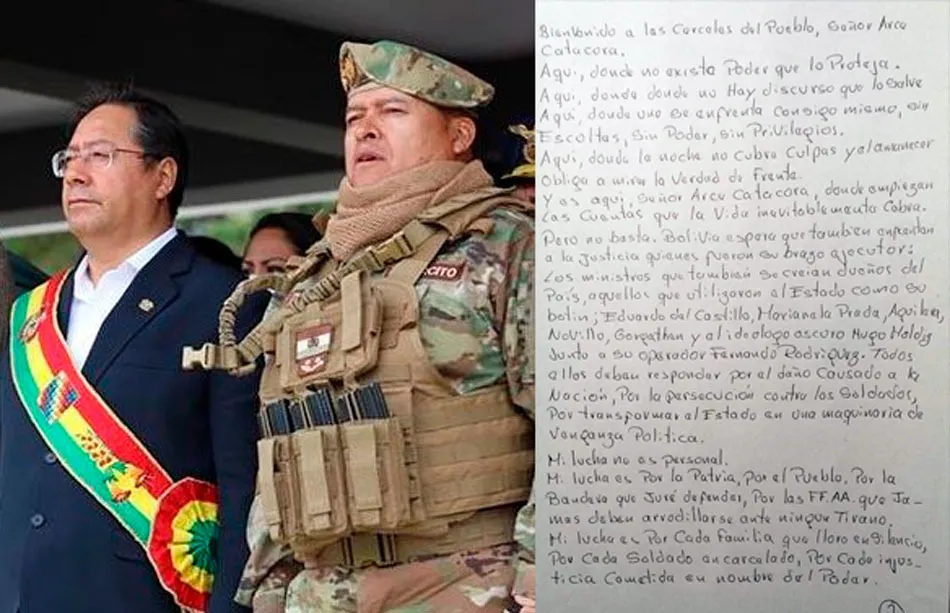 EJÉRCITO
Bienvenido a las Carceles del Pueblo, Señor Arce
Catacora.
Aqui, donde no existe Poder que lo Proteja.
Aqui, donde donde no Hay discurso que lo Salve
Aqui, donde uno se enfrenta Consigo mismo, sin
Escoltas, Sin Poder, sin Privilegios.
Aqui, donde la noche no Cubre Culpas y el amanecer
Obliga a mirar la Verdad de Frente.
Y es aqui, Señor Arce Catacora, donde empiezan
Las Cuentas que la Vida inevitablemente Cobra.
Pero no basta. Bolivia espera que tambien enfrenten
a la Justicia quienes fueron Su brazo ejecutor:
Los ministros que tambien Se creian dueños del
País, aquellos que utilizaron el Estado como Su
botin; Eduardo del Castillo, Mariana la Prada, Aquilara,
Novillo, y el ideologo oscuro Hugo Moldiz
Junto a su operador Fernando Rodriguez. Todos
ellos deben responder por el daño Causado a la
Nación, Por la persecución contra los Soldados,
Por transformar el Estado en una maquinaria de
Venganza Politica.
Mi lucha no es personal.
Mi lucha es Por la Patria, Por el Pueblo, Por la
Bandera que Juré defender, Por las FF.AA. que Ja-
mas deben arrodillarse ante ningun Tirano.
Mi lucha es Por Cada Familia que lloro en Silencio,
Por Cada Soldado encarcelado, Por Cada injus-
ticia Cometida en nombre del Poder.